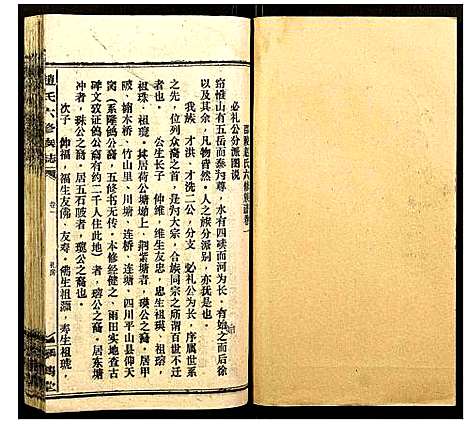 邵陵赵氏六修族谱卷一
必礼公分派图说
窃惟山有五岳而为尊，水有四渎而河为长。有前乃有后徐
以及其余，凡物皆然。人之族分派别，亦犹是也。
我族，才洪、才洗二公，分支 必礼公为长，序属世系
之先，位列众裔之首，是为大宗，合族同宗之所谓百世不迁
公生长子 仲维，维生友忠，忠生祖瑛、祖瑢、
祖珠、祖琬。其居荷公塘坳上、荆紫塘者，瑛公之裔。居甲
陂、㙍木桥、竹山里、川塘、连桥、连塘、四川平山县仰天
窝（系隆鸽公裔，五修书无传。本修经健之、雨田实地查古
碑文双证鸽公裔有约二千人住此地）者，瑢公之裔。居东塘
冲者，珠公之裔。居五石陂者，琬公之裔也。
次子 仲福，福生友佛、友寿，佛生祖灏，寿生祖琥
赵氏六修族谱
卷一
礼房